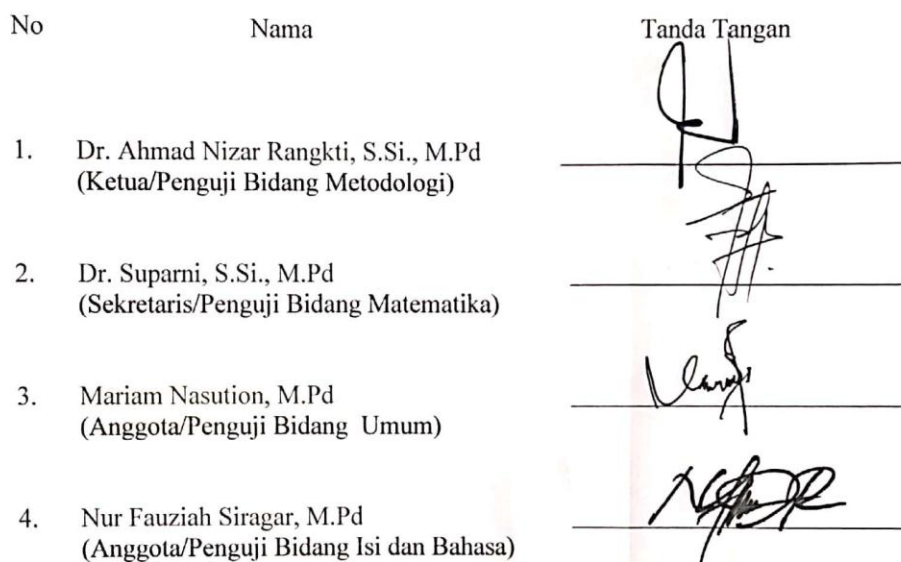 No Nama Tanda Tangan
1. Dr. Ahmad Nizar Rangkti, S.Si., M.Pd
(Ketua/Penguji Bidang Metodologi)
2. Dr. Suparni, S.Si., M.Pd
(Sekretaris/Penguji Bidang Matematika)
3. Mariam Nasution, M.Pd
(Anggota/Penguji Bidang Umum)
4. Nur Fauziah Siragar, M.Pd
(Anggota/Penguji Bidang Isi dan Bahasa)